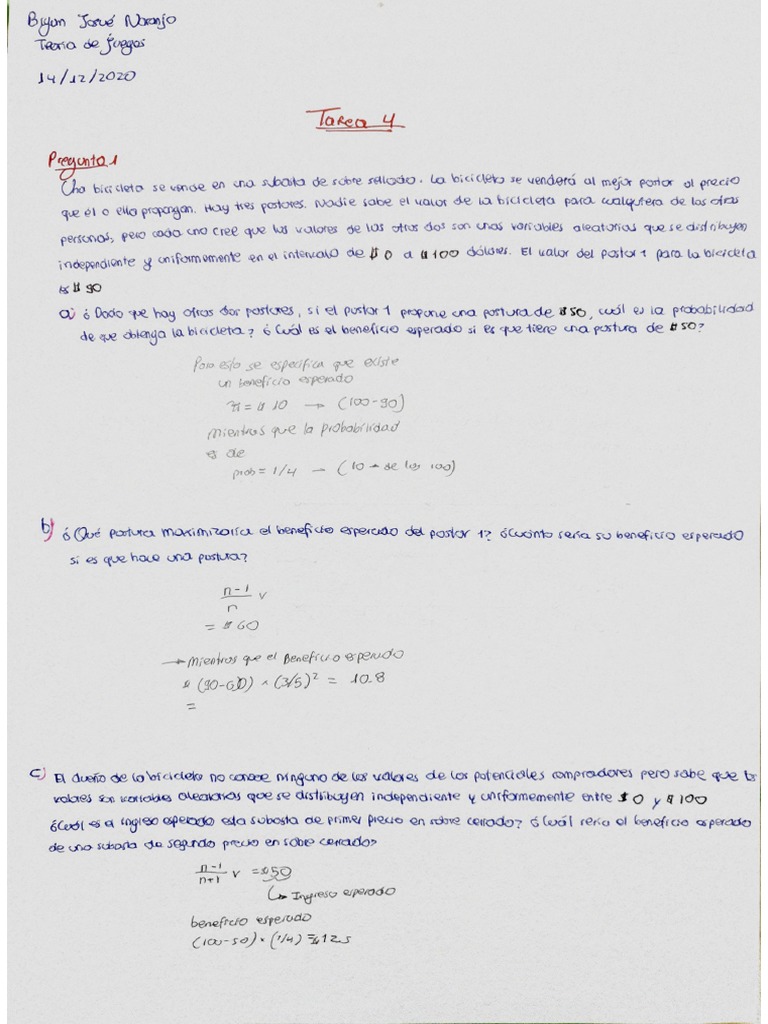 Bryan Josué Naranjo
Teoría de juegos
14/12/2020
Tarea 4
Pregunta 1
Una bicicleta se vende en una subasta de sobre sellado. La bicicleta se venderá al mejor postor al precio
que él o ella propongan. Hay tres postores. Nadie sabe el valor de la bicicleta para cualquiera de las otras
personas, pero cada uno cree que los valores de los otros dos son unas variables aleatorias que se distribuyen
independiente y uniformemente en el intervalo de $0 a $100 dólares. El valor del postor 1 para la bicicleta
es $90
a) ¿ Dado que hay otros dos postores, si el postor 1 propone una postura de $50, cuál es la probabilidad
de que obtenga la bicicleta? ¿Cuál es el beneficio esperado si es que tiene una postura de $50?
Para esto se especifica que existe
un beneficio esperado
π = $10 → (100-90)
Mientras que la probabilidad
es de
prob = 1/4 → (10 → de los 100)
b) ¿Qué postura maximizaría el beneficio esperado del postor 1? ¿Cuánto sería su beneficio esperado
si es que hace una postura?
n-1
n v
= $60
→ Mientras que el Beneficio esperado
(90-60) × (3/5)² = 10.8
=
c) El dueño de la bicicleta no conoce ninguno de los valores de los potenciales compradores pero sabe que los
valores son variables aleatorias que se distribuyen independiente y uniformemente entre $0 y $100
¿Cuál es el ingreso esperado esta subasta de primer precio en sobre cerrado? ¿Cuál sería el beneficio esperado
de una subasta de segundo precio en sobre cerrado?
n-1
n+1 v = $50
↳ Ingreso esperado
beneficio esperado
(100-50) × (1/4) = $12.5